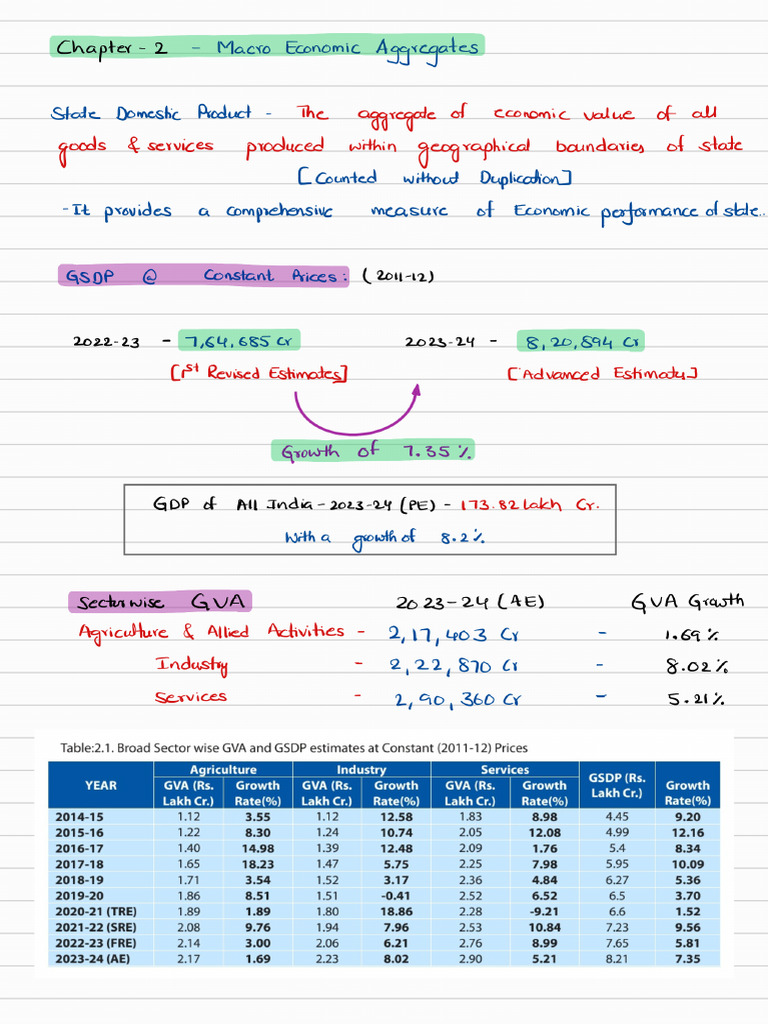 Chapter - 2 - Macro Economic Aggregates
State Domestic Product - The aggregate of economic value of all
goods & services produced within geographical boundaries of state
[Counted without Duplication]
- It provides a comprehensive measure of Economic performance of state..
GSDP @ Constant Prices: (2011-12)
2022-23 - 7,64,685 Cr 2023-24 - 8,20,894 Cr
[1st Revised Estimates] [Advanced Estimate]
Growth of 7.35%
GDP of All India - 2023-24 (PE) - 173.82 Lakh Cr.
With a growth of 8.2%
Sectorwise GVA 2023-24 (AE) GVA Growth
Agriculture & Allied Activities - 2,17,403 Cr - 1.69%
Industry - 2,22,870 Cr - 8.02%
Services - 2,90,360 Cr - 5.21%
Table:2.1. Broad Sector wise GVA and GSDP estimates at Constant (2011-12) Prices
YEAR Agriculture Industry Services GSDP (Rs. Lakh Cr.) Growth Rate(%)
GVA (Rs. Lakh Cr.) Growth Rate(%) GVA (Rs. Lakh Cr.) Growth Rate(%) GVA (Rs. Lakh Cr.) Growth Rate(%)
2014-15 1.12 3.55 1.12 12.58 1.83 8.98 4.45 9.20
2015-16 1.22 8.30 1.24 10.74 2.05 12.08 4.99 12.16
2016-17 1.40 14.98 1.39 12.48 2.09 1.76 5.4 8.34
2017-18 1.65 18.23 1.47 5.75 2.25 7.98 5.95 10.09
2018-19 1.71 3.54 1.52 3.17 2.36 4.84 6.27 5.36
2019-20 1.86 8.51 1.51 -0.41 2.52 6.52 6.5 3.70
2020-21 (TRE) 1.89 1.89 1.80 18.86 2.28 -9.21 6.6 1.52
2021-22 (SRE) 2.08 9.76 1.94 7.96 2.53 10.84 7.23 9.56
2022-23 (FRE) 2.14 3.00 2.06 6.21 2.76 8.99 7.65 5.81
2023-24 (AE) 2.17 1.69 2.23 8.02 2.90 5.21 8.21 7.35